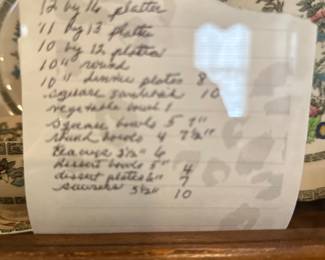 12 by 16 platter
11 by 13 platter
10 by 12 platter
10" round
10" dinner plates 8
square sandwich 10
vegetable bowl 1
square bowls 5 9"
bowls 4 7½"
teacups 3½" 6
dessert bowls 5" 4
dissert plates 6" 7
saucers 5½" 10